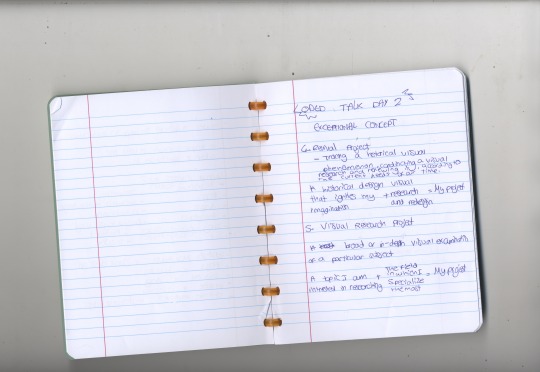 TALK DAY 2
EXCEPTIONAL CONCEPT
Project
- Tracing a historical visual
phenomenon, continuing a visual
research and renewing it, according to
the current needs of time.
A historical design visual
that ignites my + research = My project
imagination and redesign
5- Visual Research Project
A broad or in-depth visual examination
of a particular subject
A topic I am + The field = My project
interested in researching in which I
specialize
the most